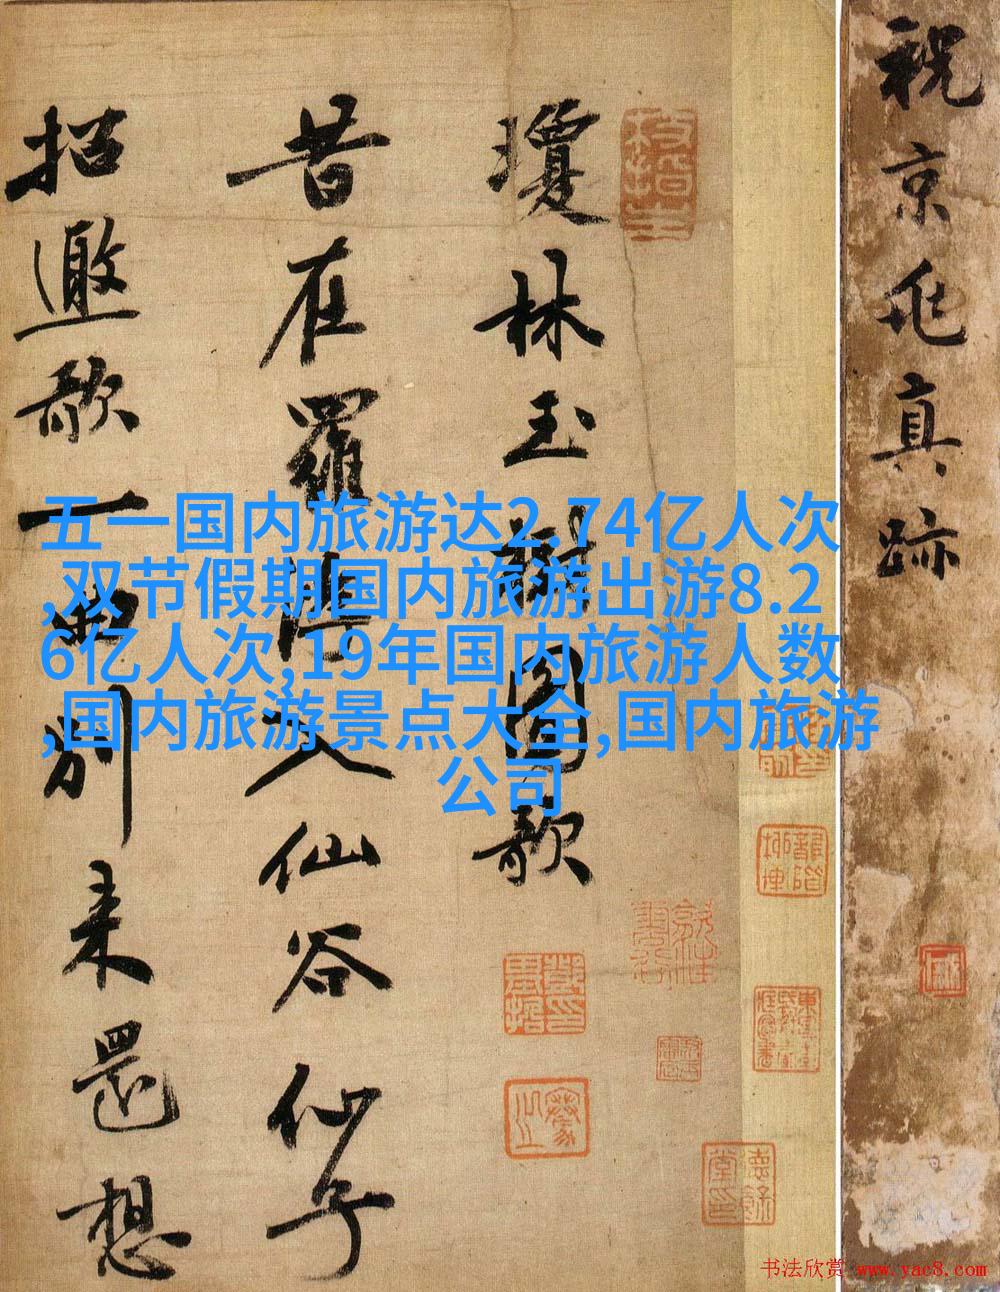 祝京兆真跡
瓊林玉樹圖歌
昔在羅浮入仙谷仙子
招邀歌一曲別來還想
五一国内旅游达2.74亿人次
,双节假期国内旅游出游8.2
6亿人次,19年国内旅游人数
,国内旅游景点大全,国内旅游
公司
书法欣赏 www.yac8.com